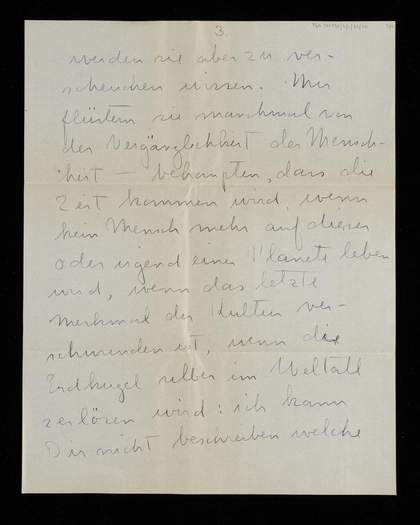 3.
werden sie aber zu ver-
scheuchen wissen. Mir
flüstern sie manchmal von
der Vergänglichkeit der Mensch-
heit — behaupten, dass die
Zeit kommen wird, wenn
kein Mensch mehr auf dieser
oder irgend einer Planete leben
wird, wenn das letzte
Merkmal der Kultur ver-
schwunden ist, wenn die
Erdkugel selber im Weltall
zerlösen wird: ich kann
Dir nicht beschreiben welche